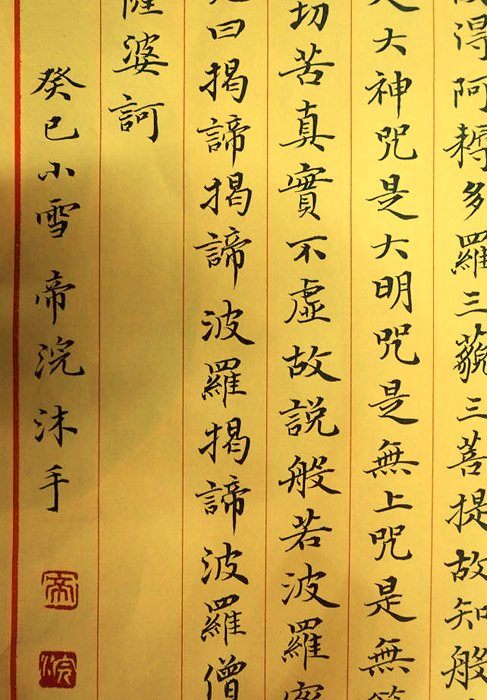 得阿耨多羅三藐三菩提故知般
是大神咒是大明咒是無上咒是無
切苦真實不虛故說般若波羅
曰揭諦揭諦波羅揭諦波羅僧
薩婆訶
癸巳小雪帝浣沐手
帝
浣